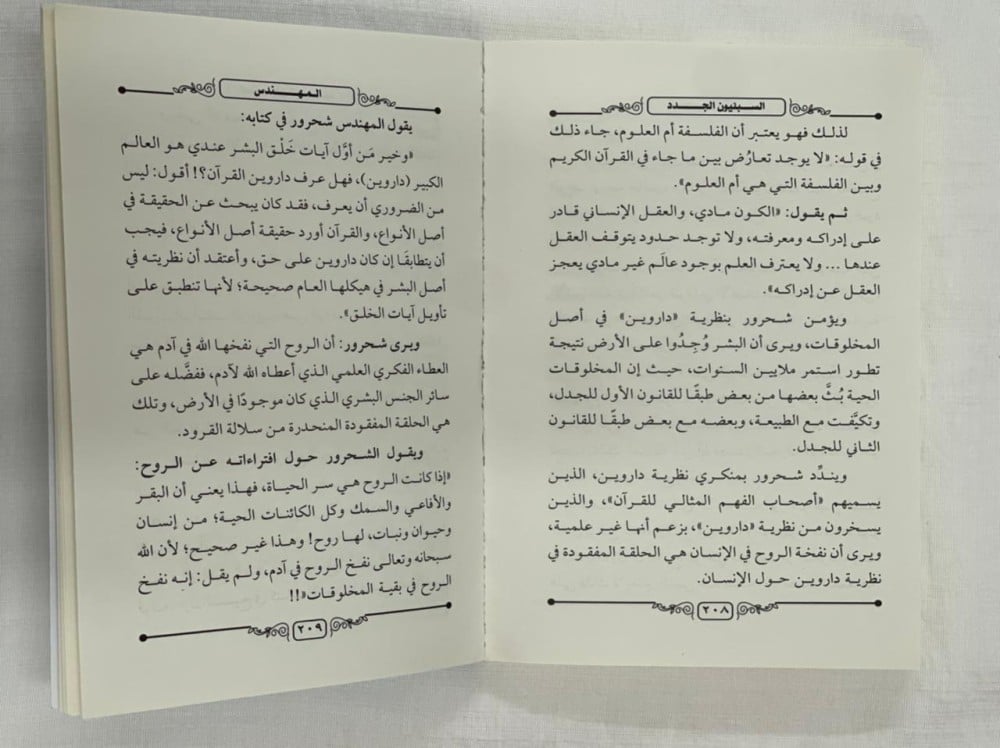 السبئيون الجدد
لذلك فهو يعتبر أن الفلسفة أم العلوم، جاء ذلك
في قوله: «لا يوجد تعارُض بين ما جاء في القرآن الكريم
وبين الفلسفة التي هي أم العلوم».
ثم يقول: «الكون مادي، والعقل الإنساني قادر
على إدراكه ومعرفته، ولا توجد حدود يتوقف العقل
عندها ... ولا يعترف العلم بوجود عالَم غير مادي يعجز
العقل عن إدراكه».
ويؤمن شحرور بنظرية «داروين» في أصل
المخلوقات، ويرى أن البشر وُجِدُوا على الأرض نتيجة
تطور استمر ملايين السنوات، حيث إن المخلوقات
الحية بُثَّ بعضها من بعض طبقًا للقانون الأول للجدل،
وتكيَّفت مع الطبيعة، وبعضه مع بعض طبقًا للقانون
الثاني للجدل.
ويندِّد شحرور بمنكري نظرية داروين، الذين
يسميهم «أصحاب الفهم المثالي للقرآن»، والذين
يسخرون من نظرية «داروين»، بزعم أنها غير علمية،
ويرى أن نفخة الروح في الإنسان هي الحلقة المفقودة في
نظرية داروين حول الإنسان.
٢٠٨
المهندس
يقول المهندس شحرور في كتابه:
«وخير مَن أوَّل آيات خَلْق البشر عندي هو العالم
الكبير (داروين)، فهل عرف داروين القرآن؟! أقول: ليس
من الضروري أن يعرف، فقد كان يبحث عن الحقيقة في
أصل الأنواع، والقرآن أورد حقيقة أصل الأنواع، فيجب
أن يتطابقًا إن كان داروين على حق، وأعتقد أن نظريته في
أصل البشر في هيكلها العام صحيحة؛ لأنها تنطبق على
تأويل آيات الخلق».
ويرى شحرور: أن الروح التي نفخها الله في آدم هي
العطاء الفكري العلمي الذي أعطاه الله لآدم، ففضَّله على
سائر الجنس البشري الذي كان موجودًا في الأرض، وتلك
هي الحلقة المفقودة المنحدرة من سلالة القرود.
ويقول الشحرور حول افتراءاته عن الروح:
«إذا كانت الروح هي سر الحياة، فهذا يعني أن البقر
والأفاعي والسمك وكل الكائنات الحية؛ من إنسان
وحيوان ونبات، لها روح! وهذا غير صحيح؛ لأن الله
سبحانه وتعالى نفخ الروح في آدم، ولم يقل: إنه نفخ
الروح في بقية المخلوقات»!!
٢٠٩